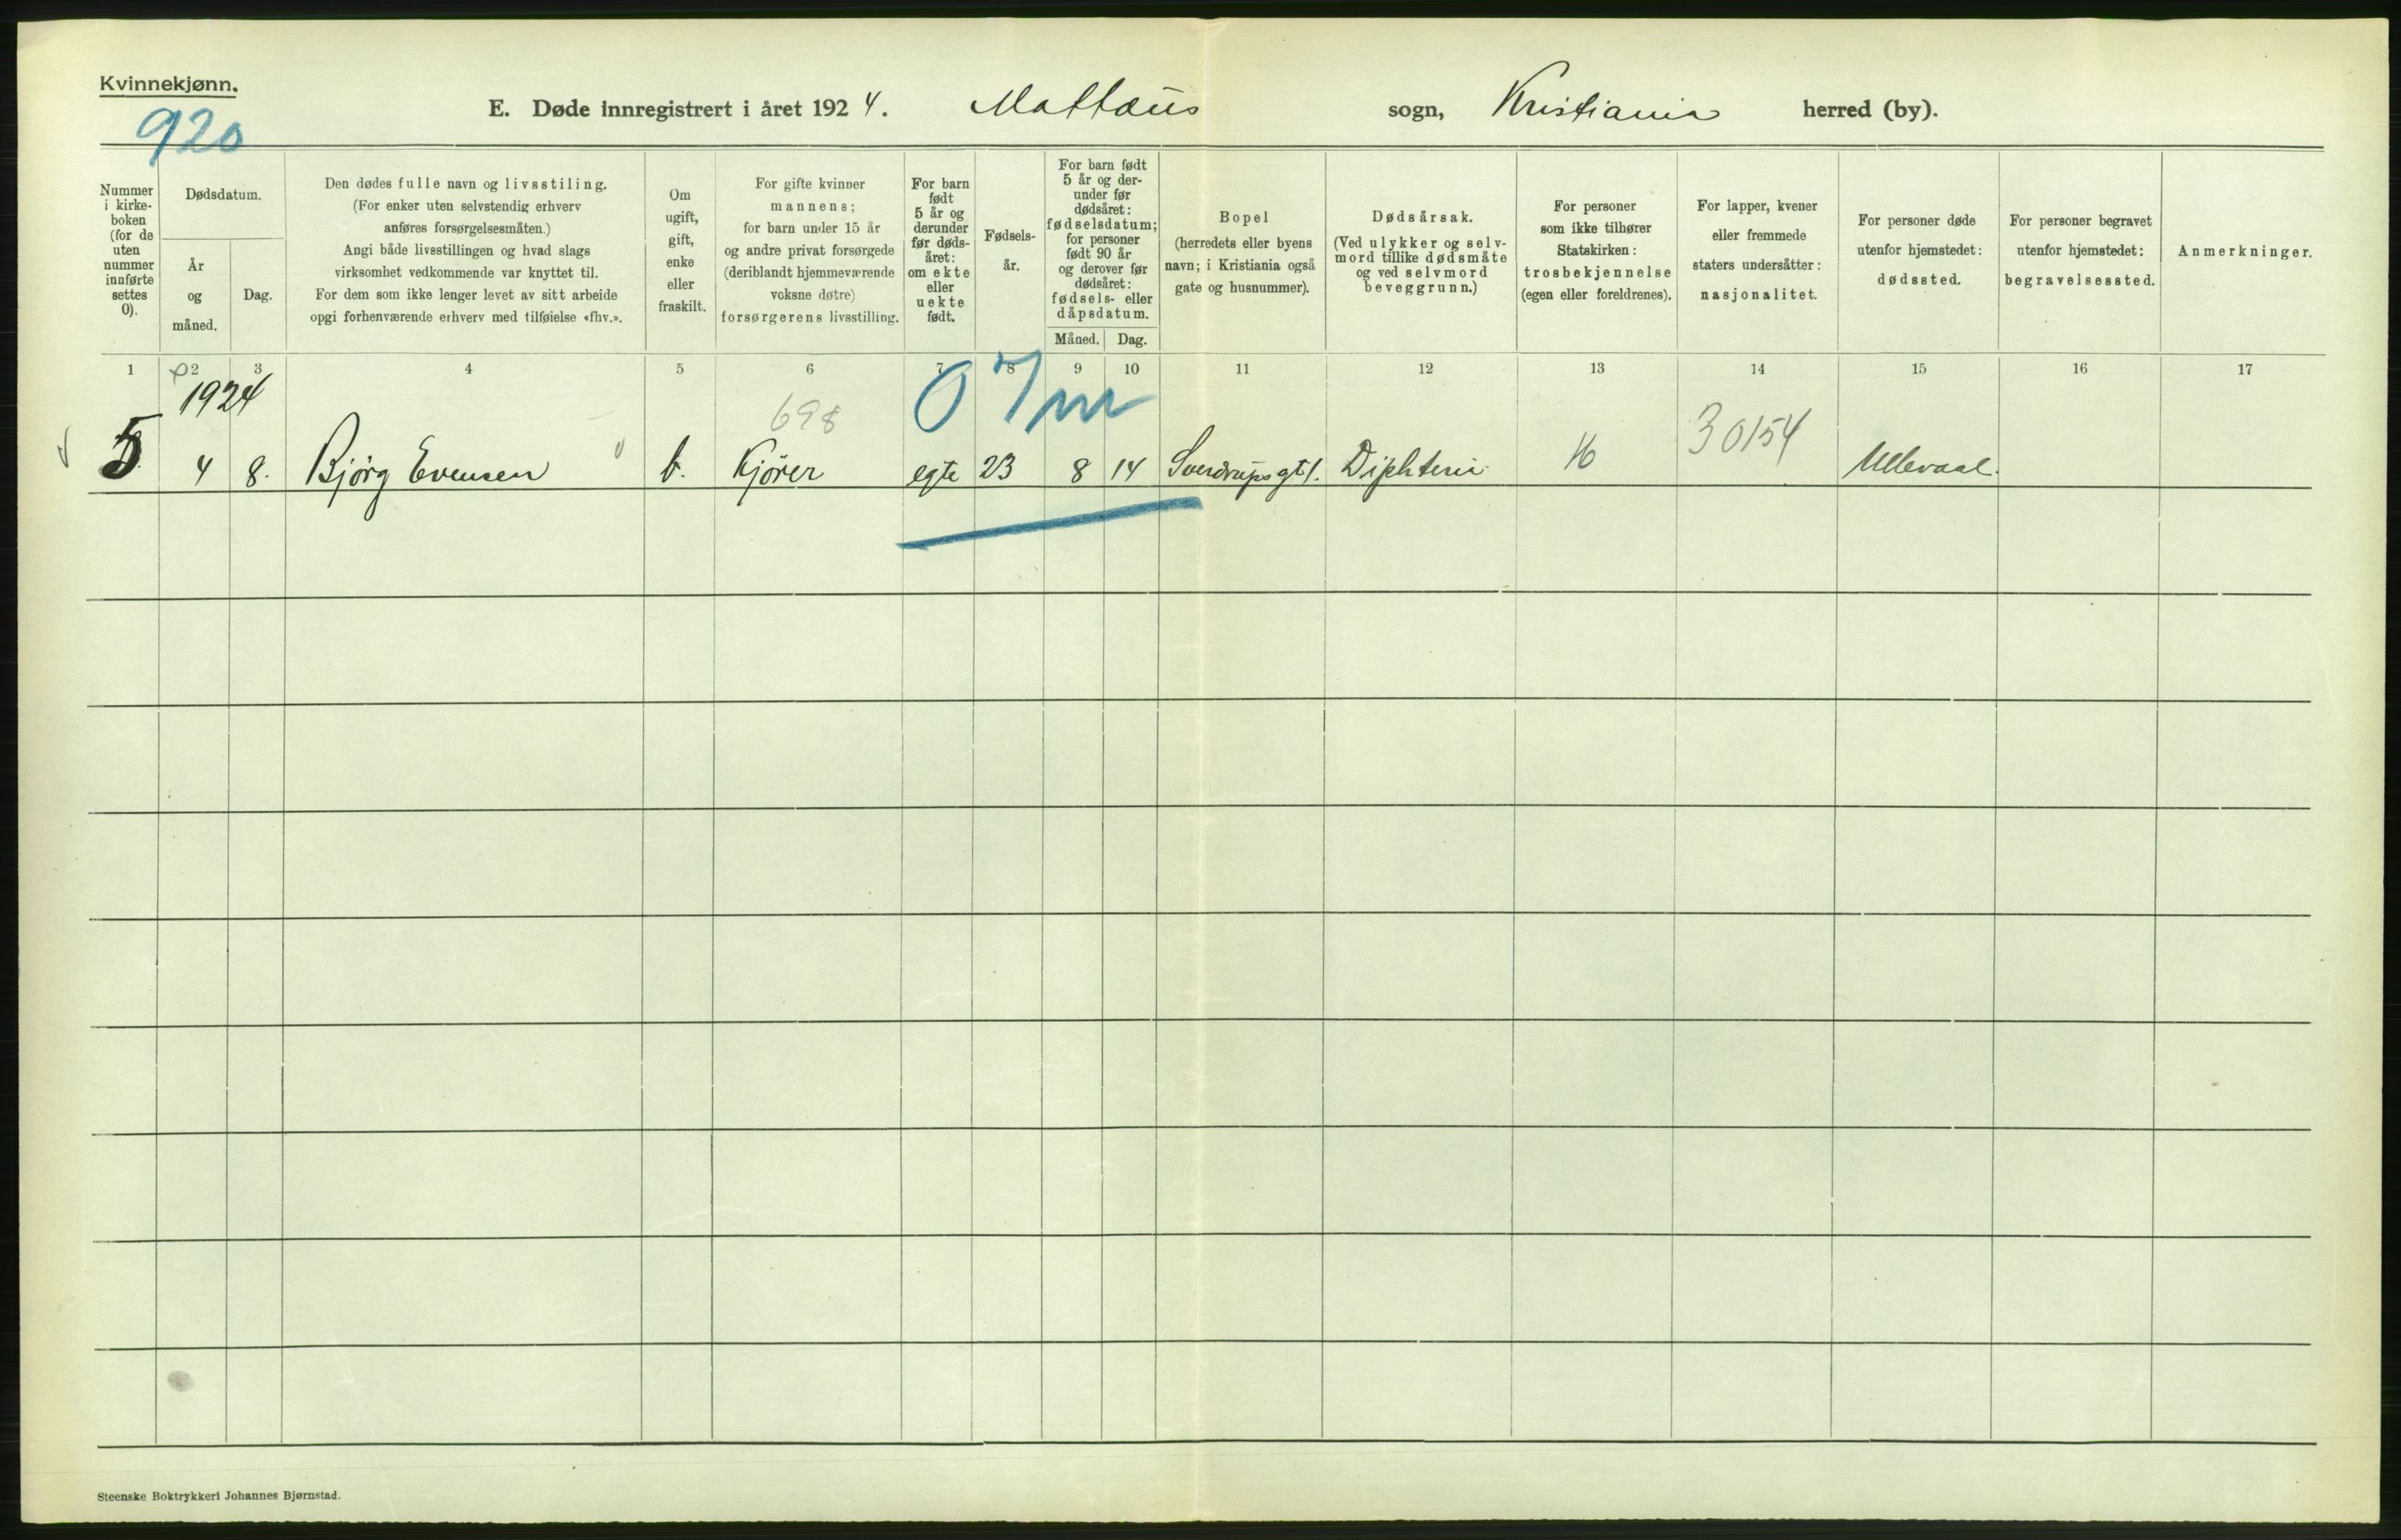 Kvinnekjønn.
920
E. Døde innregistrert i året 1924. Mattæus sogn, Kristiania herred (by).
Nummer
i kirke-
boken
(for de
uten
nummer
innførte
settes
0).
Dødsdatum.
År
og
måned.
Dag.
Den dødes fulle navn og livsstiling.
(For enker uten selvstendig erhverv
anføres forsørgelsesmåten.)
Angi både livsstillingen og hvad slags
virksomhet vedkommende var knyttet til.
For dem som ikke lenger levet av sitt arbeide
opgi forhenværende erhverv med tilføielse «fhv.».
Om
ugift,
gift,
enke
eller
fraskilt.
For gifte kvinner
mannens;
for barn under 15 år
og andre privat forsørgede
(deriblandt hjemmeværende
voksne døtre)
forsørgerens livsstilling.
For barn
født
5 år og
derunder
før døds-
året:
om ekte
eller
uekte
født.
Fødsels-
år.
For barn født
5 år og der-
under før
dødsåret:
fødselsdatum;
for personer
født 90 år
og derover før
dødsåret:
fødsels- eller
dåpsdatum.
Måned. Dag.
Bopel
(herredets eller byens
navn; i Kristiania også
gate og husnummer).
Dødsårsak.
(Ved ulykker og selv-
mord tillike dødsmåte
og ved selvmord
beveggrunn.)
For personer
som ikke tilhører
Statskirken:
trosbekjennelse
(egen eller foreldrenes).
For lapper, kvener
eller fremmede
staters undersåtter:
nasjonalitet.
For personer døde
utenfor hjemstedet:
dødssted.
For personer begravet
utenfor hjemstedet:
begravelsessted.
Anmerkninger.
1 2 3 4 5 6 7 8 9 10 11 12 13 14 15 16 17
1924
698
0 7 m
30154
5 4 8. Bjørg Evensen b. Kjører egte 23 8 14 Sverdrups gt 1. Diphteri 16 Ullevaal.
Steenske Boktrykkeri Johannes Bjørnstad.